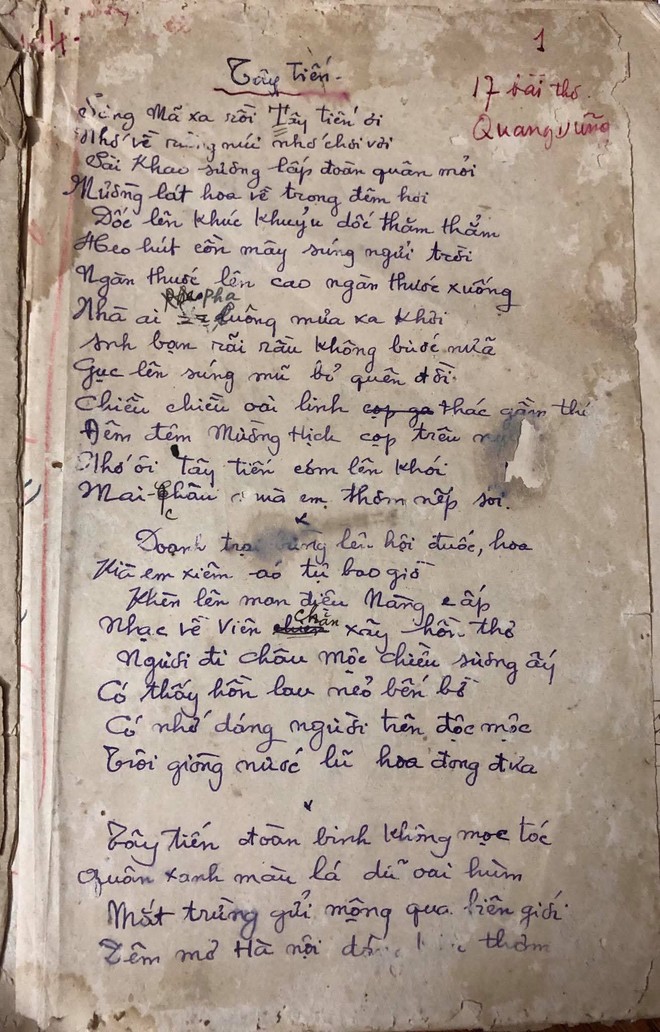 1
17 bài thơ
Quang Dũng
Tây tiến
Sông Mã xa rồi Tây tiến ơi
Nhớ về rừng núi nhớ chơi vơi
Sài Khao sương lấp đoàn quân mỏi
Mường lát hoa về trong đêm hơi
Dốc lên khúc khuỷu dốc thăm thẳm
Heo hút cồn mây súng ngửi trời
Ngàn thước lên cao ngàn thước xuống
Nhà ai Pha luông mưa xa khơi
Anh bạn rãi rầu không bước nữa
Gục lên súng mũ bỏ quên đời
Chiều chiều oai linh cọp gầ thác gầm thé
Đêm đêm Mường Hịch cọp trêu
Nhớ ôi Tây tiến cơm lên khói
Mai Châu mà em thơm nếp sôi.
Doanh trại bừng lên hội đuốc, hoa
Kìa em xiêm áo tự bao giờ
Khèn lên man điệu Nàng e ấp
Nhạc về Viên chăn xây hồn thơ
Người đi châu Mộc chiều sương ấy
Có thấy hồn lau nẻo bến bờ
Có nhớ dáng người trên độc mộc
Trôi giòng nước lũ hoa đong đưa
Tây tiến đoàn binh không mọc tóc
Quân xanh màu lá dữ oai hùm
Mắt trừng gửi mộng qua biên giới
Đêm mơ Hà nội thơm